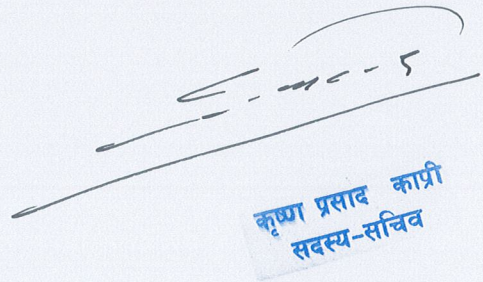 कृष्ण प्रसाद काप्री
सदस्य-सचिव